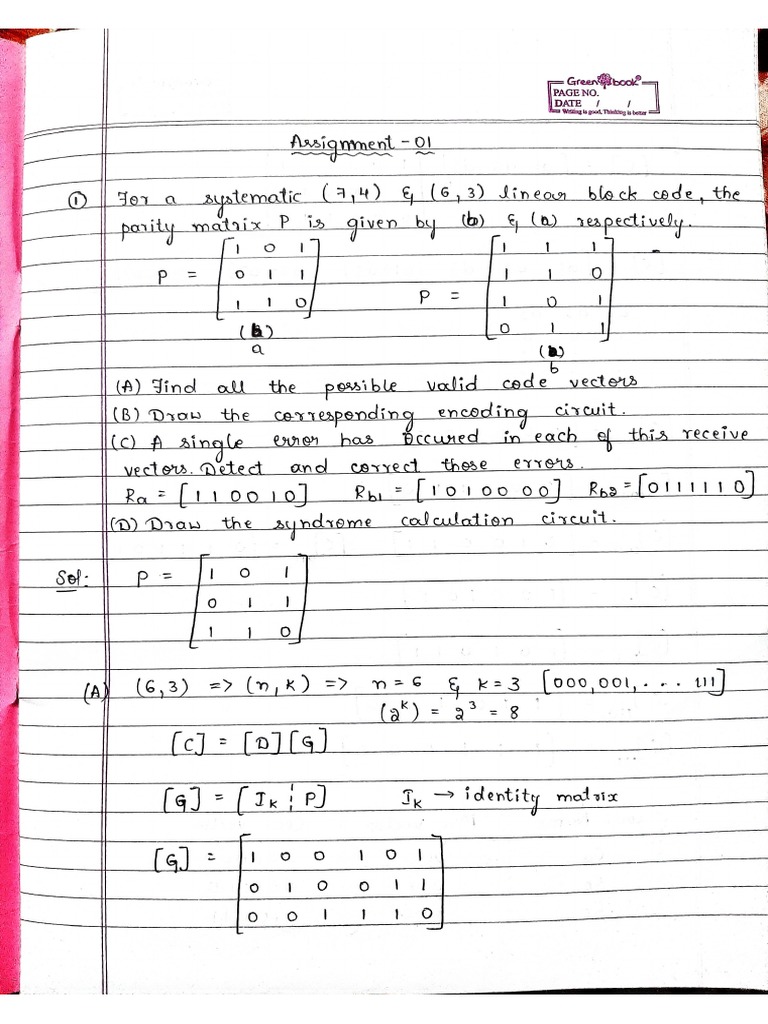 Green book
PAGE NO.
DATE / /
Writing is good, Thinking is better
Assignment - 01
① For a systematic (7,4) & (6,3) linear block code, the
parity matrix P is given by (b) & (a) respectively.
P = [1 0 1
0 1 1
1 1 0]
(b)
a
P = [1 1 1
1 1 0
1 0 1
0 1 1]
(a)
b
(A) Find all the possible valid code vectors
(B) Draw the corresponding encoding circuit.
(C) A single error has occured in each of this receive
vectors. Detect and correct those errors.
Ra = [1 1 0 0 1 0] Rb1 = [1 0 1 0 0 0 0] Rb2 = [0 1 1 1 1 1 0]
(D) Draw the syndrome calculation circuit.
Sol: P = [1 0 1
0 1 1
1 1 0]
(A) (6,3) => (n,k) => n = 6 & k = 3 [000,001,. . . . 111]
(2^k) = 2^3 = 8
[C] = [D][G]
[G] = [I_K ¦ P] I_K → identity matrix
[G] = [1 0 0 1 0 1
0 1 0 0 1 1
0 0 1 1 1 0]